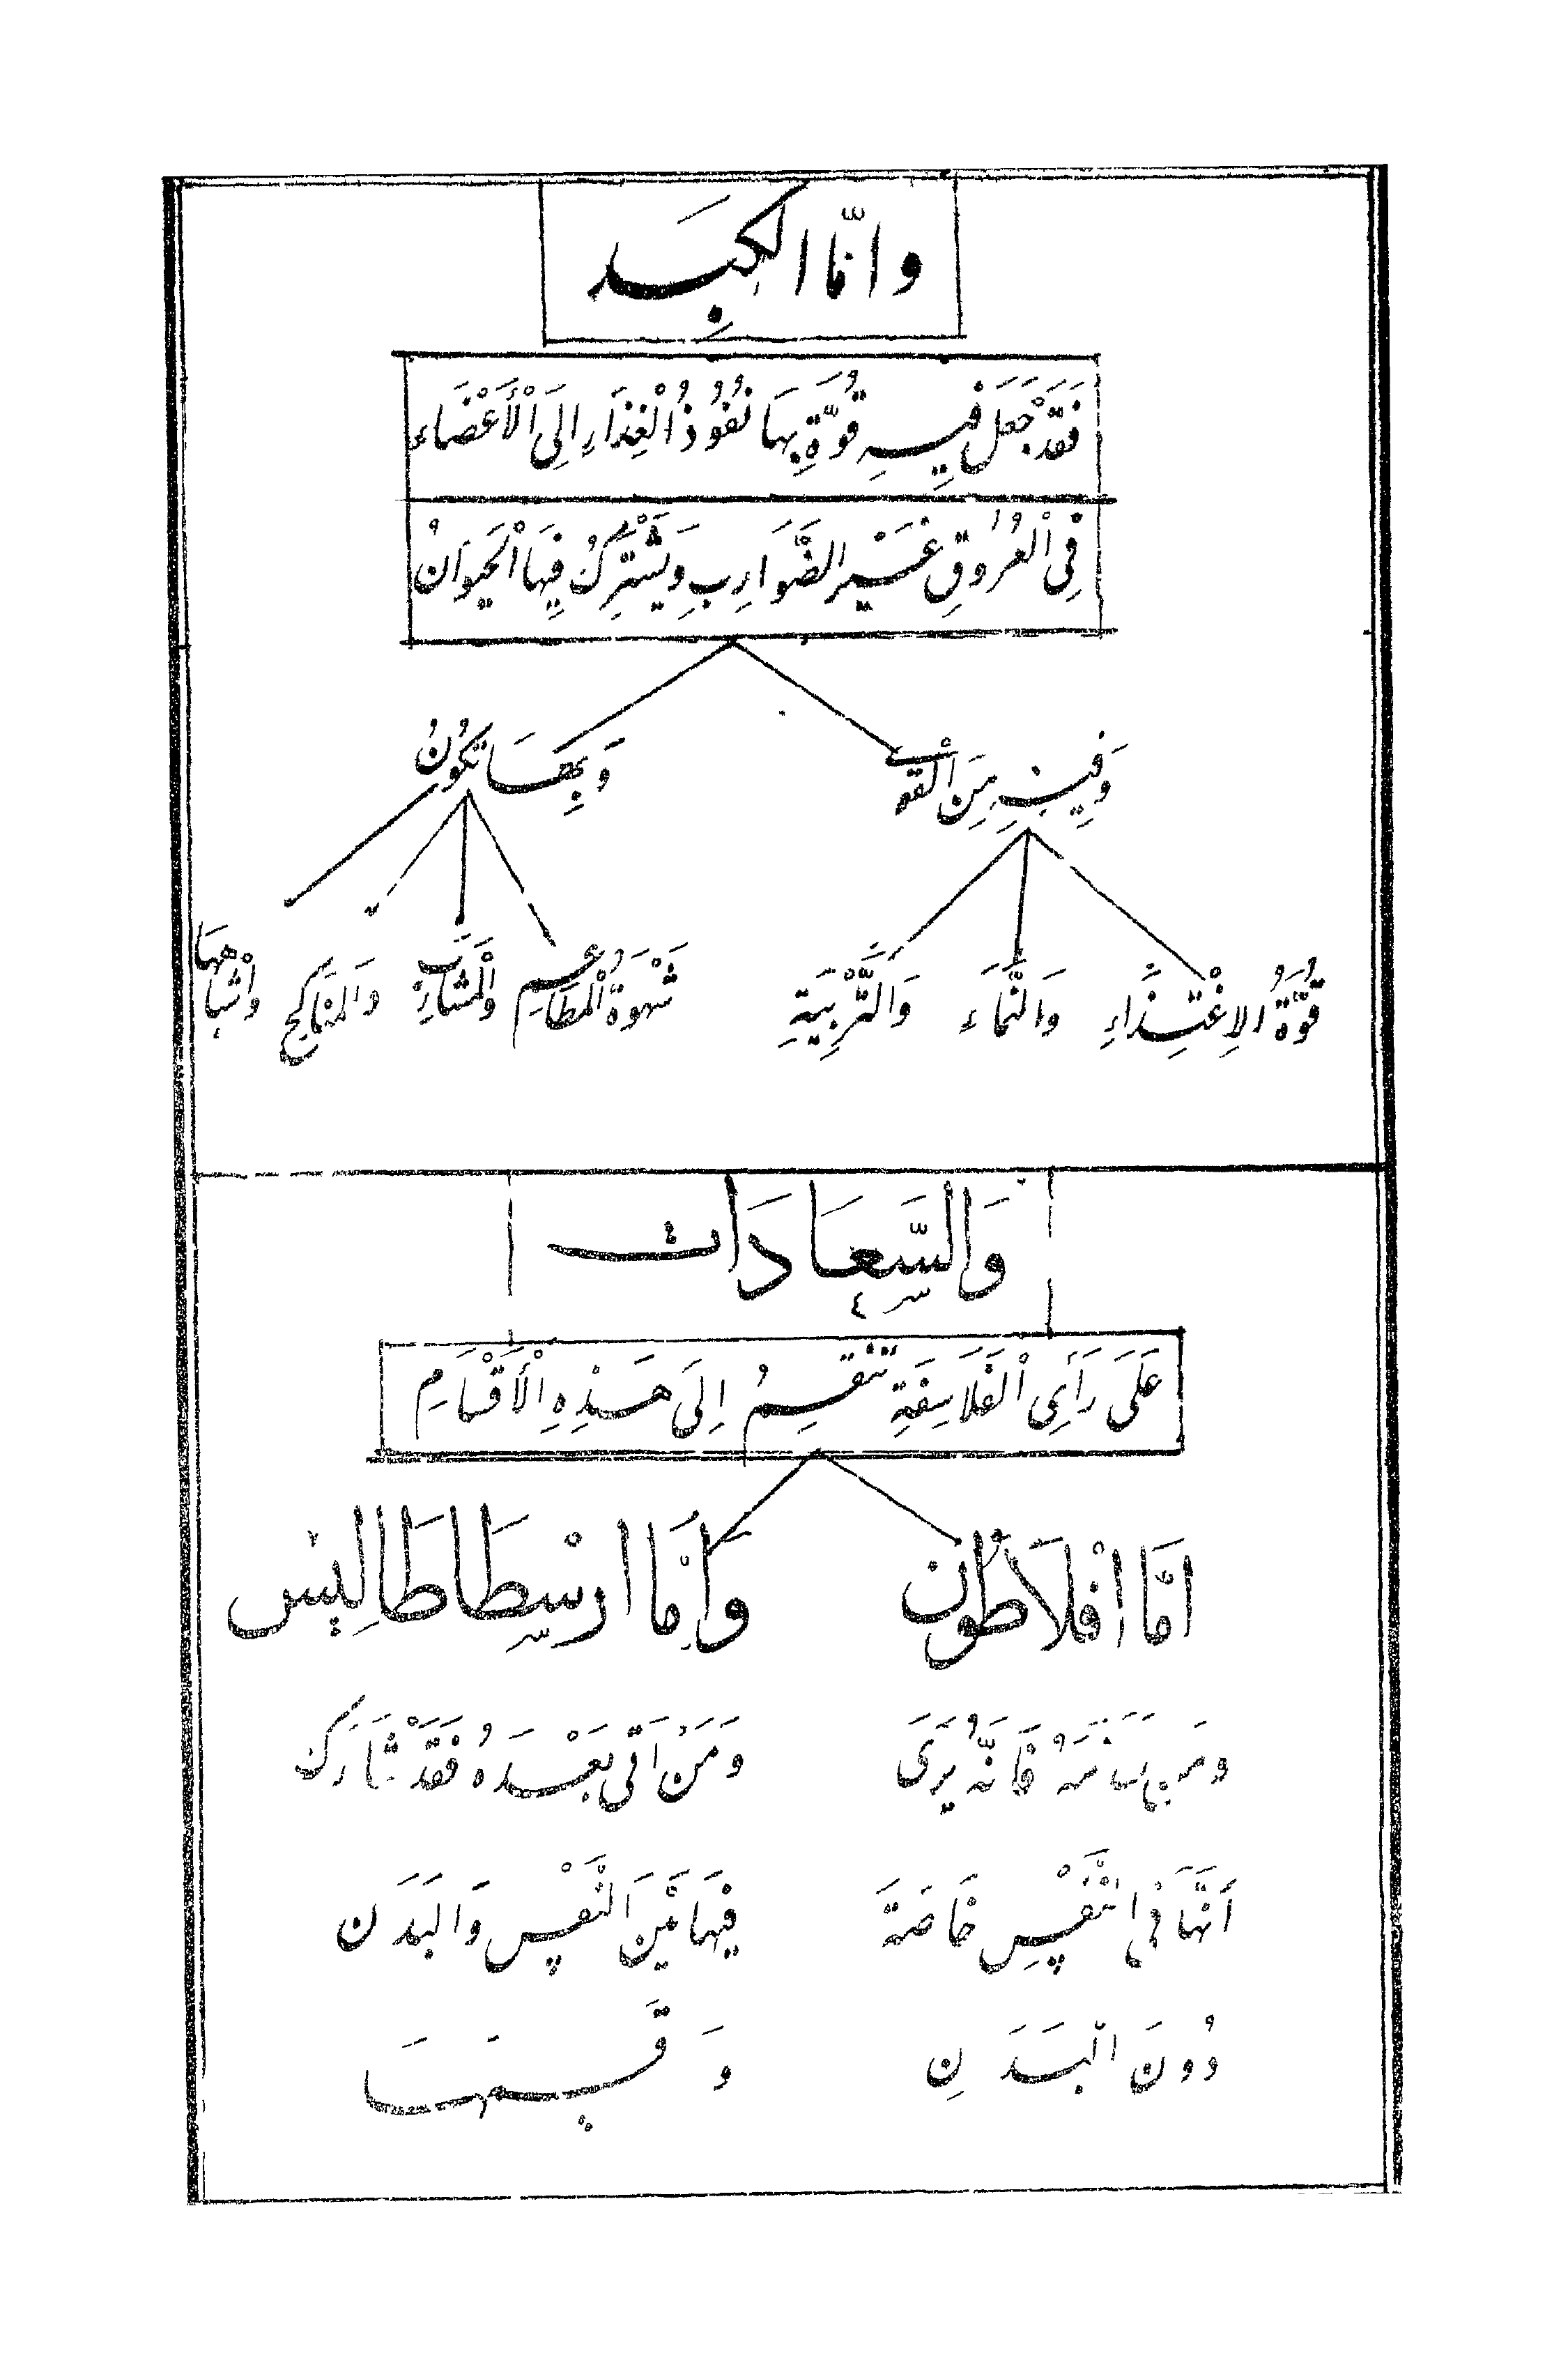 وَأَمَّا الكَبِد
فَقَدْ جَعَلَ فِيهِ قُوَّةٍ بِهَا نُفُوذُ الْغِذَاءِ إِلَى الْأَعْضَاءِ
فِي الْعُرُوقِ غَيْرِ الضَّوَارِبِ وَيَشْتَرِكُ فِيهَا الْحَيَوَانُ
وَفِيهِ مِنَ الْقُوَى
وَبِهَا تَكُونُ
قُوَّةُ الِاغْتِذَاءِ
وَالنَّمَاءِ
وَالتَّرْبِيَةِ
شَهْوَةُ الْمَطَاعِمِ
وَالْمَشَارِبِ
وَالْمَنَاكِحِ
وَأَشْبَاهِهَا
وَالسَّعَادَات
عَلَى رَأْيِ الْفَلَاسِفَةِ تَنْقَسِمُ إِلَى هَذِهِ الْأَقْسَامِ
أَمَّا افْلَاطُون
وَمَن فَإِنَّهُ يَرَى
أَنَّهَا فِي النَّفْسِ خَاصَّةً
دُونَ الْبَدَنِ
وَأَمَّا ارِسْطَاطَالِيْس
وَمَنْ أَتَى بَعْدَهُ فَقَدْ شَارَكَ
فِيهَا بَيْنَ النَّفْسِ وَالبَدَن
وَقَسَمَهَا